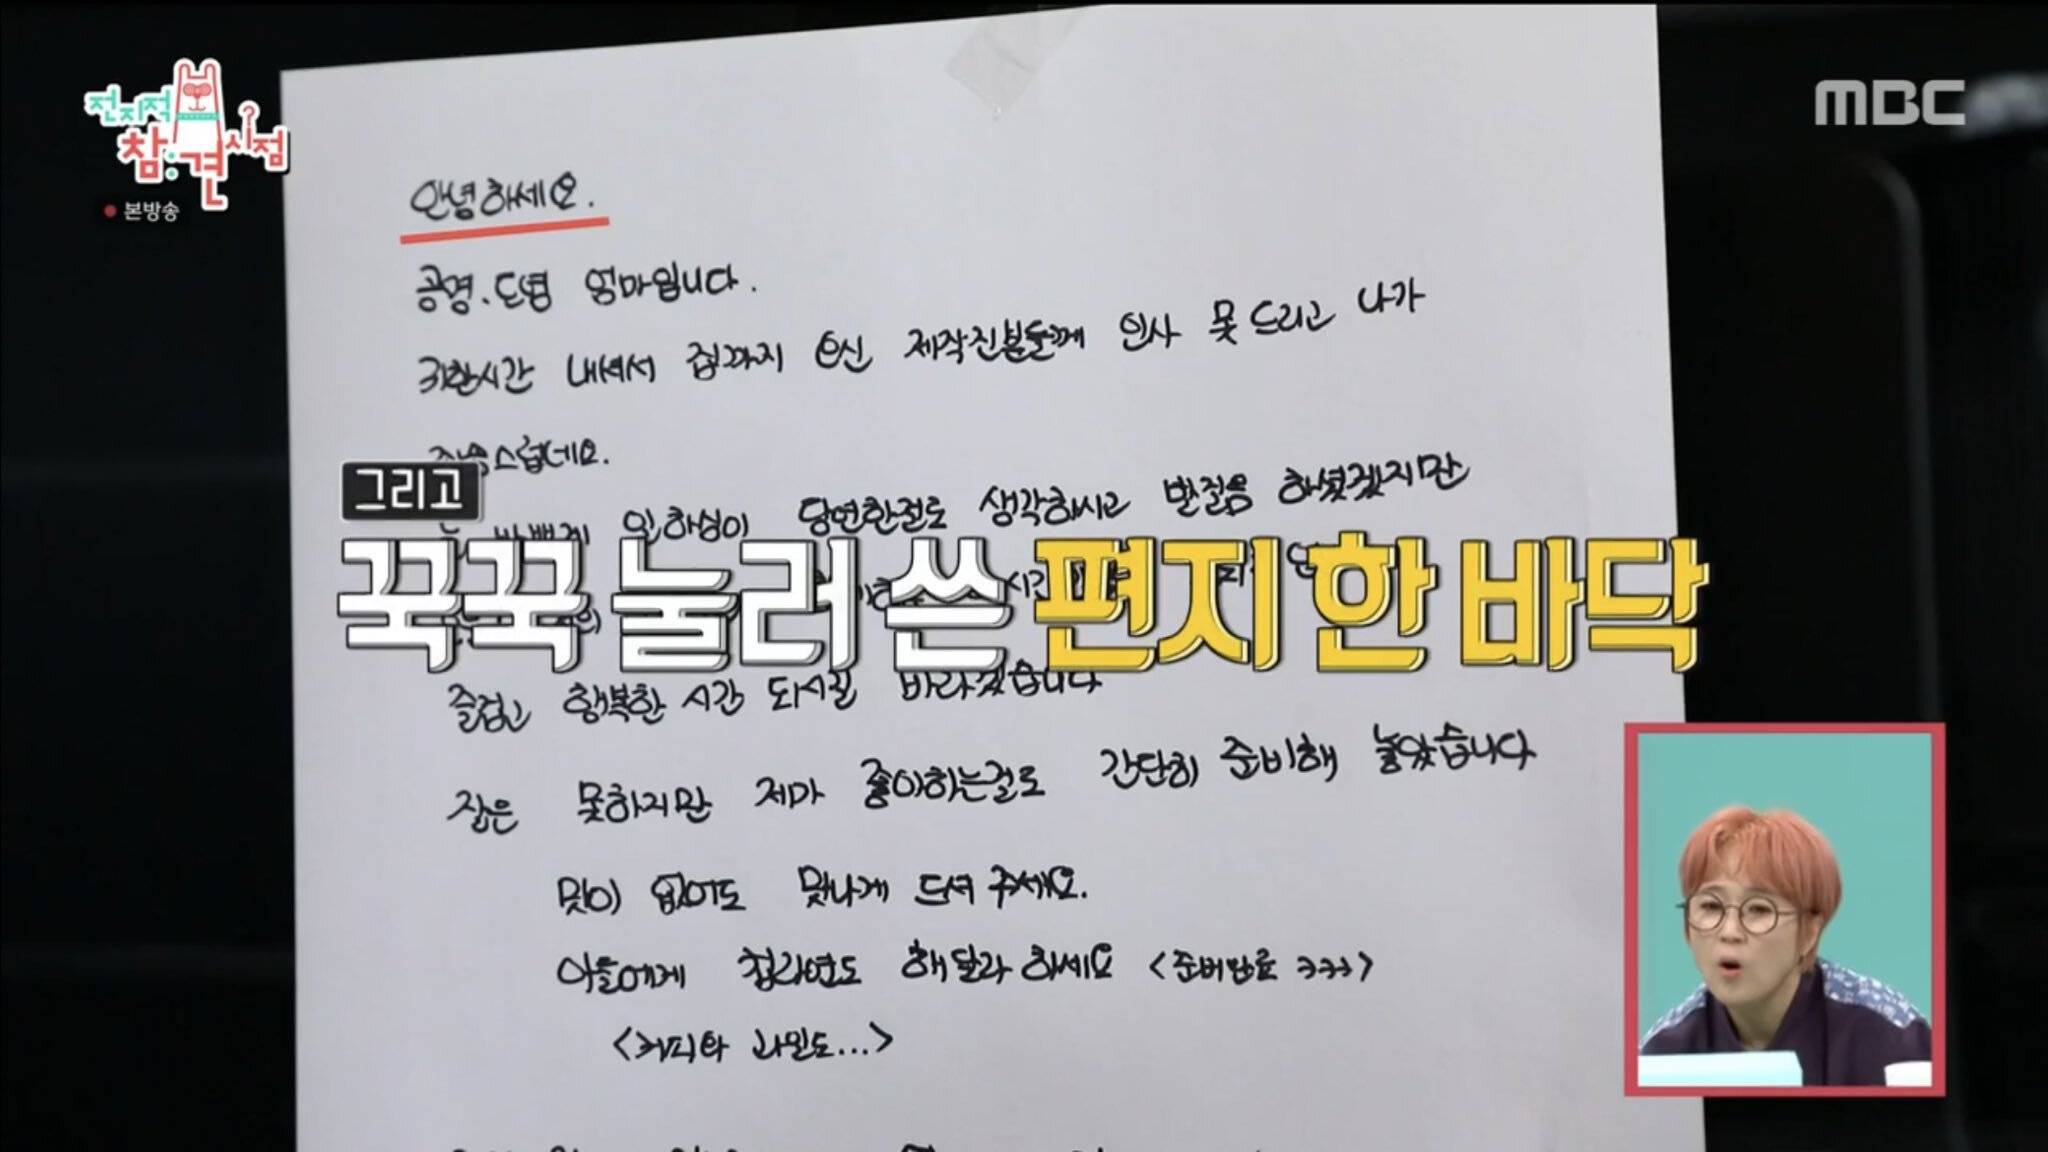 전지적
참견
시점
본방송
MBC
안녕하세요.
공명.도영 엄마입니다.
귀한시간 내셔서 집까지 오신 제작진분들께 인사 못 드리고 나가
스럽네요.
그리고
바쁘게 일하심이 당연한걸로 생각하시고 발걸음 하셨겠지만
꾹꾹 눌러 쓴 편지 한 바닥
즐겁고 행복한 시간 되시길 바라겠습니다
잘은 못하지만 제가 좋아하는걸로 간단히 준비해 놓았습니다
맛이 없어도 맛나게 드셔 주세요.
아들에게 컵라면도 해달라 하세요 <준비완료 ㅋㅋㅋ>
<커피와 과일도...>